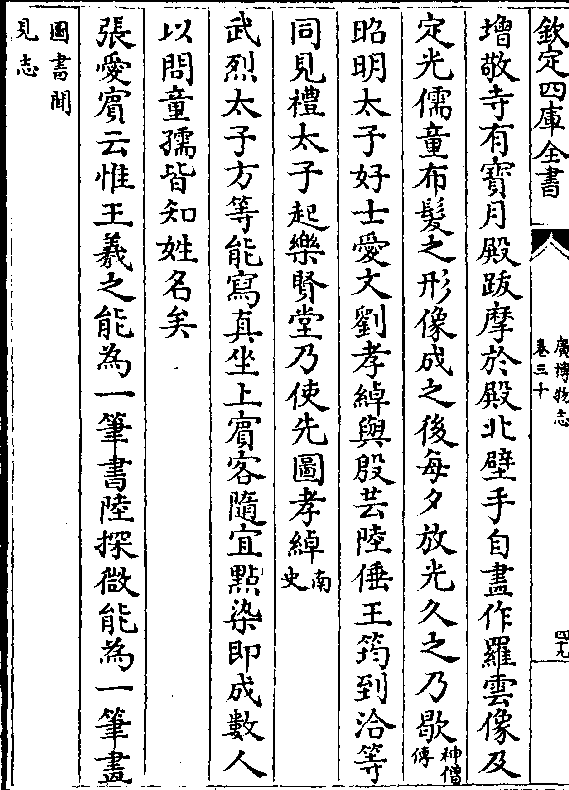 欽定四庫全書
廣博物志
卷三十
四十九
増敬寺有寳月殿跋摩於殿北壁手自畫作羅雲像及
定光儒童布髮之形像成之後毎夕放光久之乃歇神僧傳
昭明太子好士愛文劉孝綽與殷芸陸倕王筠到洽等
同見禮太子起樂賢堂乃使先圖孝綽南史
武烈太子方等能寫真坐上賓客隨宜㸃染即成數人
以問童孺皆知姓名矣
張愛賓云惟王羲之能為一筆書陸探微能為一筆畫
圖書聞見志